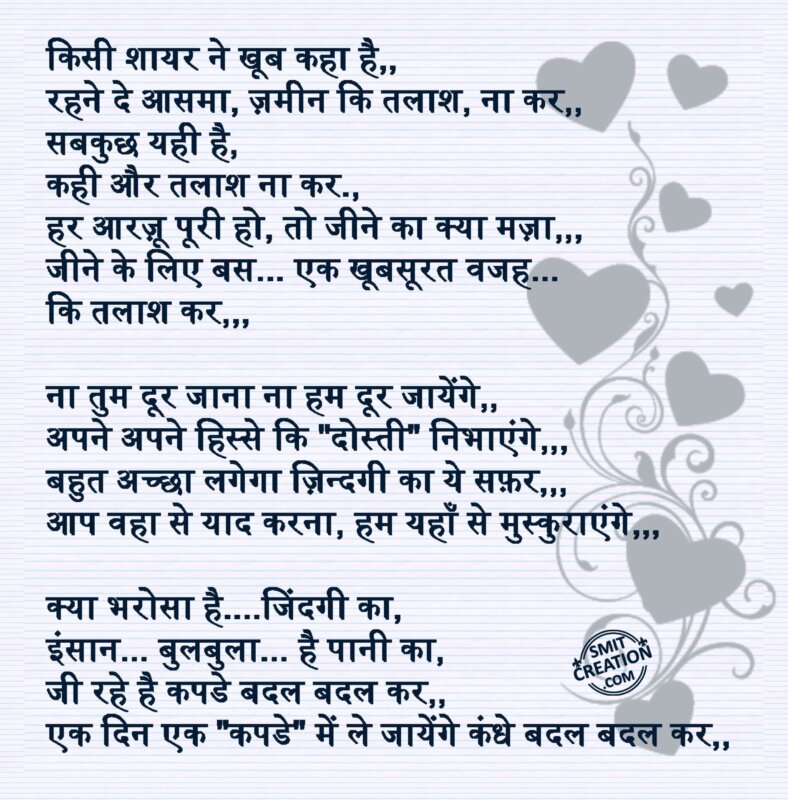 किसी शायर ने खूब कहा है,,
रहने दे आसमा, ज़मीन कि तलाश, ना कर,,
सबकुछ यही है,
कही और तलाश ना कर.,
हर आरज़ू पूरी हो, तो जीने का क्या मज़ा,,,
जीने के लिए बस... एक खूबसूरत वजह...
कि तलाश कर,,,
ना तुम दूर जाना ना हम दूर जायेंगे,,
अपने अपने हिस्से कि "दोस्ती" निभाएंगे,,,
बहुत अच्छा लगेगा ज़िन्दगी का ये सफ़र,,,
आप वहा से याद करना, हम यहाँ से मुस्कुराएंगे,,,
क्या भरोसा है....जिंदगी का,
इंसान... बुलबुला... है पानी का,
जी रहे है कपडे बदल बदल कर,,
एक दिन एक "कपडे" में ले जायेंगे कंधे बदल बदल कर,,
SMIT
CREATION
.COM